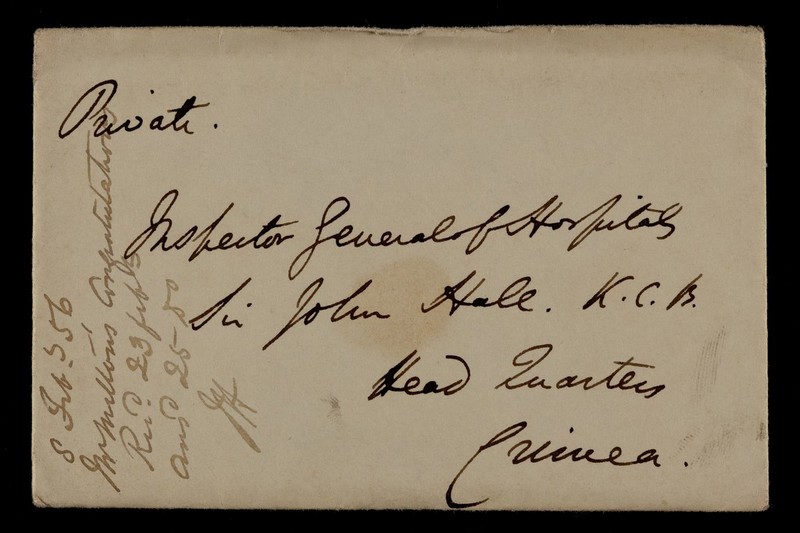 Private.
Inspector General of Hospitals
Sir John Hall. K.C.B.
Head Quarters
Crimea.
8 Feb. 56
Mr Milton's Congratulations
Recd 23 Feb
Ansd 25 -
JH